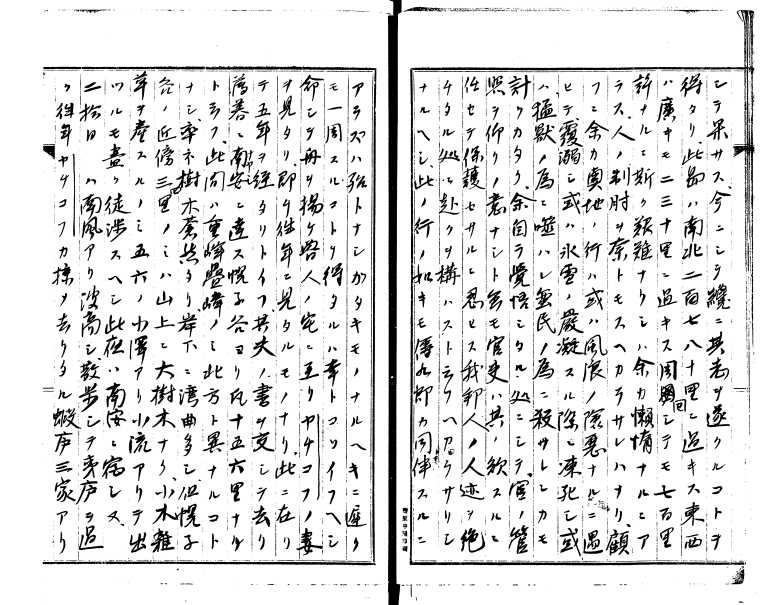 シテ果サス今ニシテ纔ニ其志ヲ遂クルコトヲ
得タリ此島ハ南北二百七八十里ニ過キス東西
ハ廣キモ二三十里ニ過キス周回シテモ七百里
許ナルニ斯ク艱難ナリシハ余カ懶惰ナルニア
ラス人ノ制肘ヲ奈トモスヘカラサレハナリ顧
フニ余カ輿地ノ行ハ或ハ風浪ノ險惡ナルニ遇
ヒテ覆溺シ或ハ氷雪ノ嚴凝スル際ニ凍死シ或
ハ猛獸ノ爲ニ噬ハレ蚩民ノ爲ニ殺サレンカモ
計リカタク余自ラ覺悟シタル処ニシテ官ノ管
照ヲ仰クノ意ナシト雖モ官吏ハ其ノ欲スルニ
任セテ保護セサルニ忍ヒス我邦人ノ人跡ヲ絶
ケタル処ニ赴クヲ構ハスト云ラヘカラサリシ
ナルヘシ此ノ行ノ如キモ傳九郎カ同伴スルニ
アラズハ殆トナシカタキモノナルヘキニ遅ク
モ一周スルコトヲ得タルハ幸トコソイフヘシ
命シテ舟ヲ揚ケ酋人ノ宅ニ至リヤケコフノ妻
ヲ見タリ即チ往年ニ見タルモノナリ此ニ在リ
テ五年ヲ經タリトイフ其夫ノ書ヲ交シテ去リ
薄暮ニ南安ニ達ス幌子谷ヨリ凡十五六里ナリ
ト云フ此間ハ重峰疊嶂ノミ此方ト異ナルコト
ナシ率ネ樹木蒼然タリ岸下ニ湾曲多シ但幌子
谷ノ近傍三里ノミハ山上ニ大樹木ナク小木雜
草ヲ產スルノミ五六ノ小澤アリ小流アリテ出
ツルモ盡ク徒渉スヘシ此夜ハ南安ニ宿シヌ
二拾日 ハ南風アリ波高シ散歩シテ夷庐ヲ過
ク往年ヤケコフカ棟ヲ去リタル蝦庐三家アリ